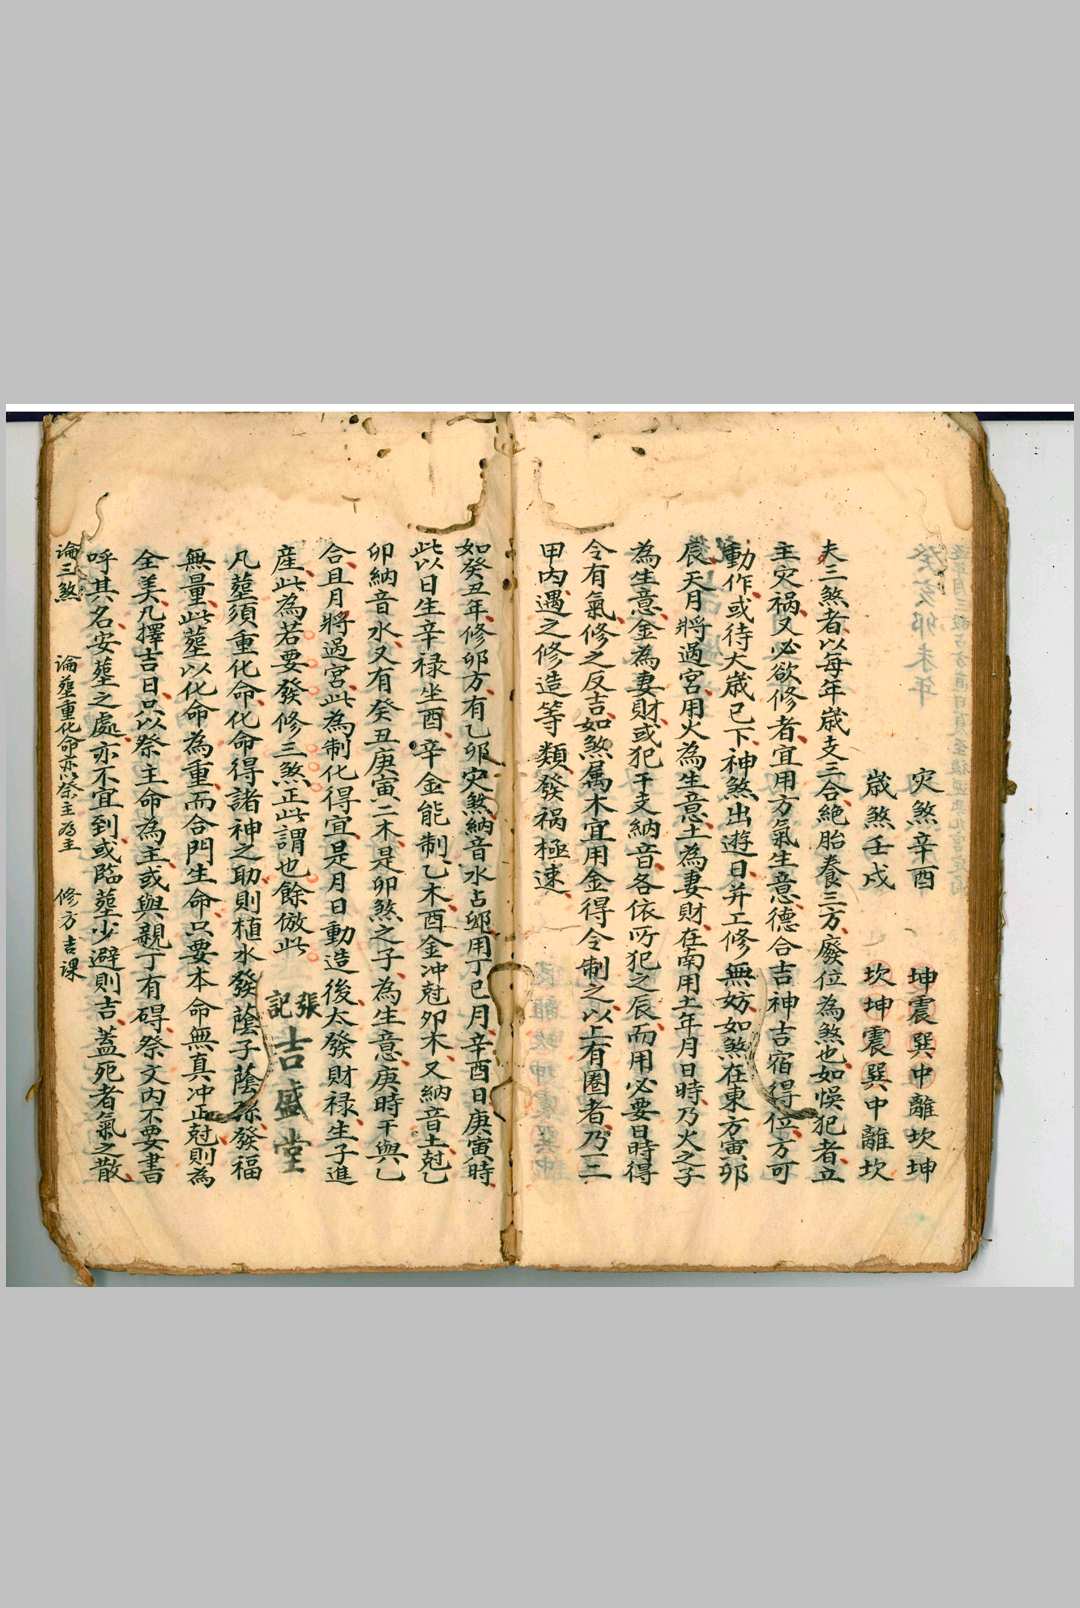 灾煞辛酉 坤震巽中離坎坤
歲煞壬戌 坎坤震巽中離坎
夫三煞者以每年歲支三合絶胎養三方廢位為煞也如悞犯者立
主灾禍又必欲修者宜用方氣生意德合吉神吉宿得位方可
動作或待大歲已下神煞出遊日并工修無妨如煞在東方寅卯
辰天月將過宮用火為生意土為妻財在南用土年月日時乃火之子
為生意金為妻財或犯干支納音各依所犯之辰而用必要日時得
令有氣修之反吉如煞属木宜用金得令制之以上有圈者乃一二
甲内遇之修造等類發禍極速
如癸丑年修卯方有乙卯灾煞納音水占卯用丁巳月辛酉日庚寅時
此以日生辛禄坐酉辛金能制乙木酉金冲尅卯木又納音土尅乙
卯納音水又有癸丑庚寅二木是卯煞之子為生意庚時干與乙
合且月將過宮此為制化得宜是月日動造後大發財禄生子進
産此為若要發修三煞正此謂也餘倣此
張記吉盛堂
凡塟須重化命化命得諸神之助則植水發蔭子蔭孫發福
無量此塟以化命為重而合門生命只要本命無真冲正尅則為
全美凡擇吉日只以祭主命為主或與親丁有碍祭文内不要書
呼其名安塟之處亦不宜到或臨塟少避則吉蓋死者氣之散
論三煞 論塟重化命亦以祭主為主 修方吉課